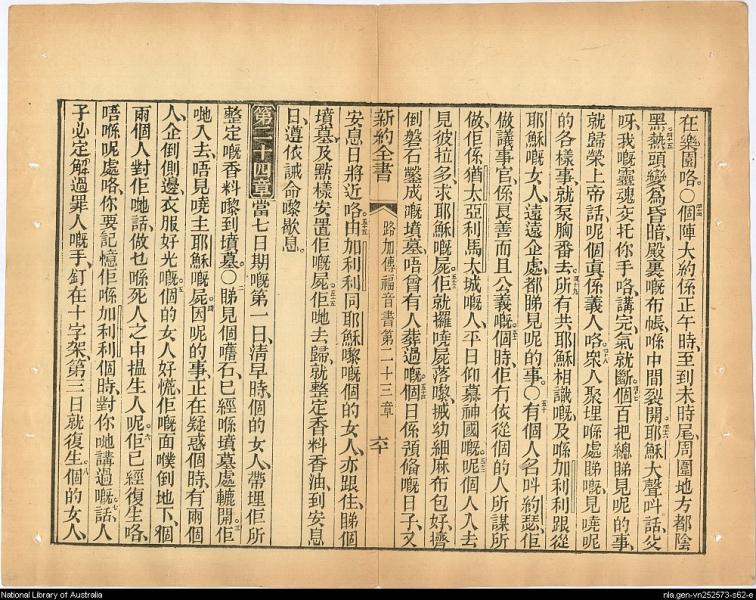 在樂園咯○個陣大約係正午時、至到未時尾、周圍地方都陰
黑、熱頭變為昏暗、殿裏嘅布帳、喺中間裂開、耶穌大聲呌話、父
呀、我嘅靈魂、交托你手咯、講完、氣就斷、個百把總睇見呢的事、
就歸榮上帝話、呢個真係義人咯、眾人聚埋喺處睇嘅、見嘵呢
的各樣事、就泵胸番去、所有共耶穌相識嘅、及喺加利利跟從
耶穌嘅女人、遠遠企處、都睇見呢的事、○有個人、名呌約瑟、佢
做議事官、係良善而且公義嘅、個時佢冇依從個的人所謀所
做、佢係猶太亞利馬太城嘅人、平日仰慕神國嘅、呢個人入去
見彼拉多、求耶穌嘅屍、佢就攞嘵屍落嚟、搣幼細麻布包好、擠
倒磐石鑿成嘅墳墓、唔曾有人葬過嘅、個日係預備嘅日子、又
新約全書 路加傳福音書第二十三章 六十
安息日將近咯、由加利利同耶穌嚟嘅個的女人、亦跟住、睇個
墳墓、及點樣安置佢嘅屍、佢哋去歸、就整定香料香油、到安息
日、遵依誡命嚟歇息。
第二十四章 當七日期嘅第一日、清早時、個的女人、帶埋佢所
整定嘅香料嚟到墳墓、○睇見個嚿石、已經喺墳墓處轆開、佢
哋入去、唔見嘵主耶穌嘅屍、因呢的事、正在疑惑個時、有兩個
人、企倒側邊、衣服好光嘅、個的女人好慌、佢嘅面噗倒地下、個
兩個人對佢哋話、做乜喺死人之中揾生人呢、佢已經復生咯、
唔喺呢處咯、你要記憶佢喺加利利個時、對你哋講過嘅話、人
子必定解過罪人嘅手、釘在十字架、第三日就復生、個的女人、
National Library of Australia
nla.gen-vn252573-s62-e